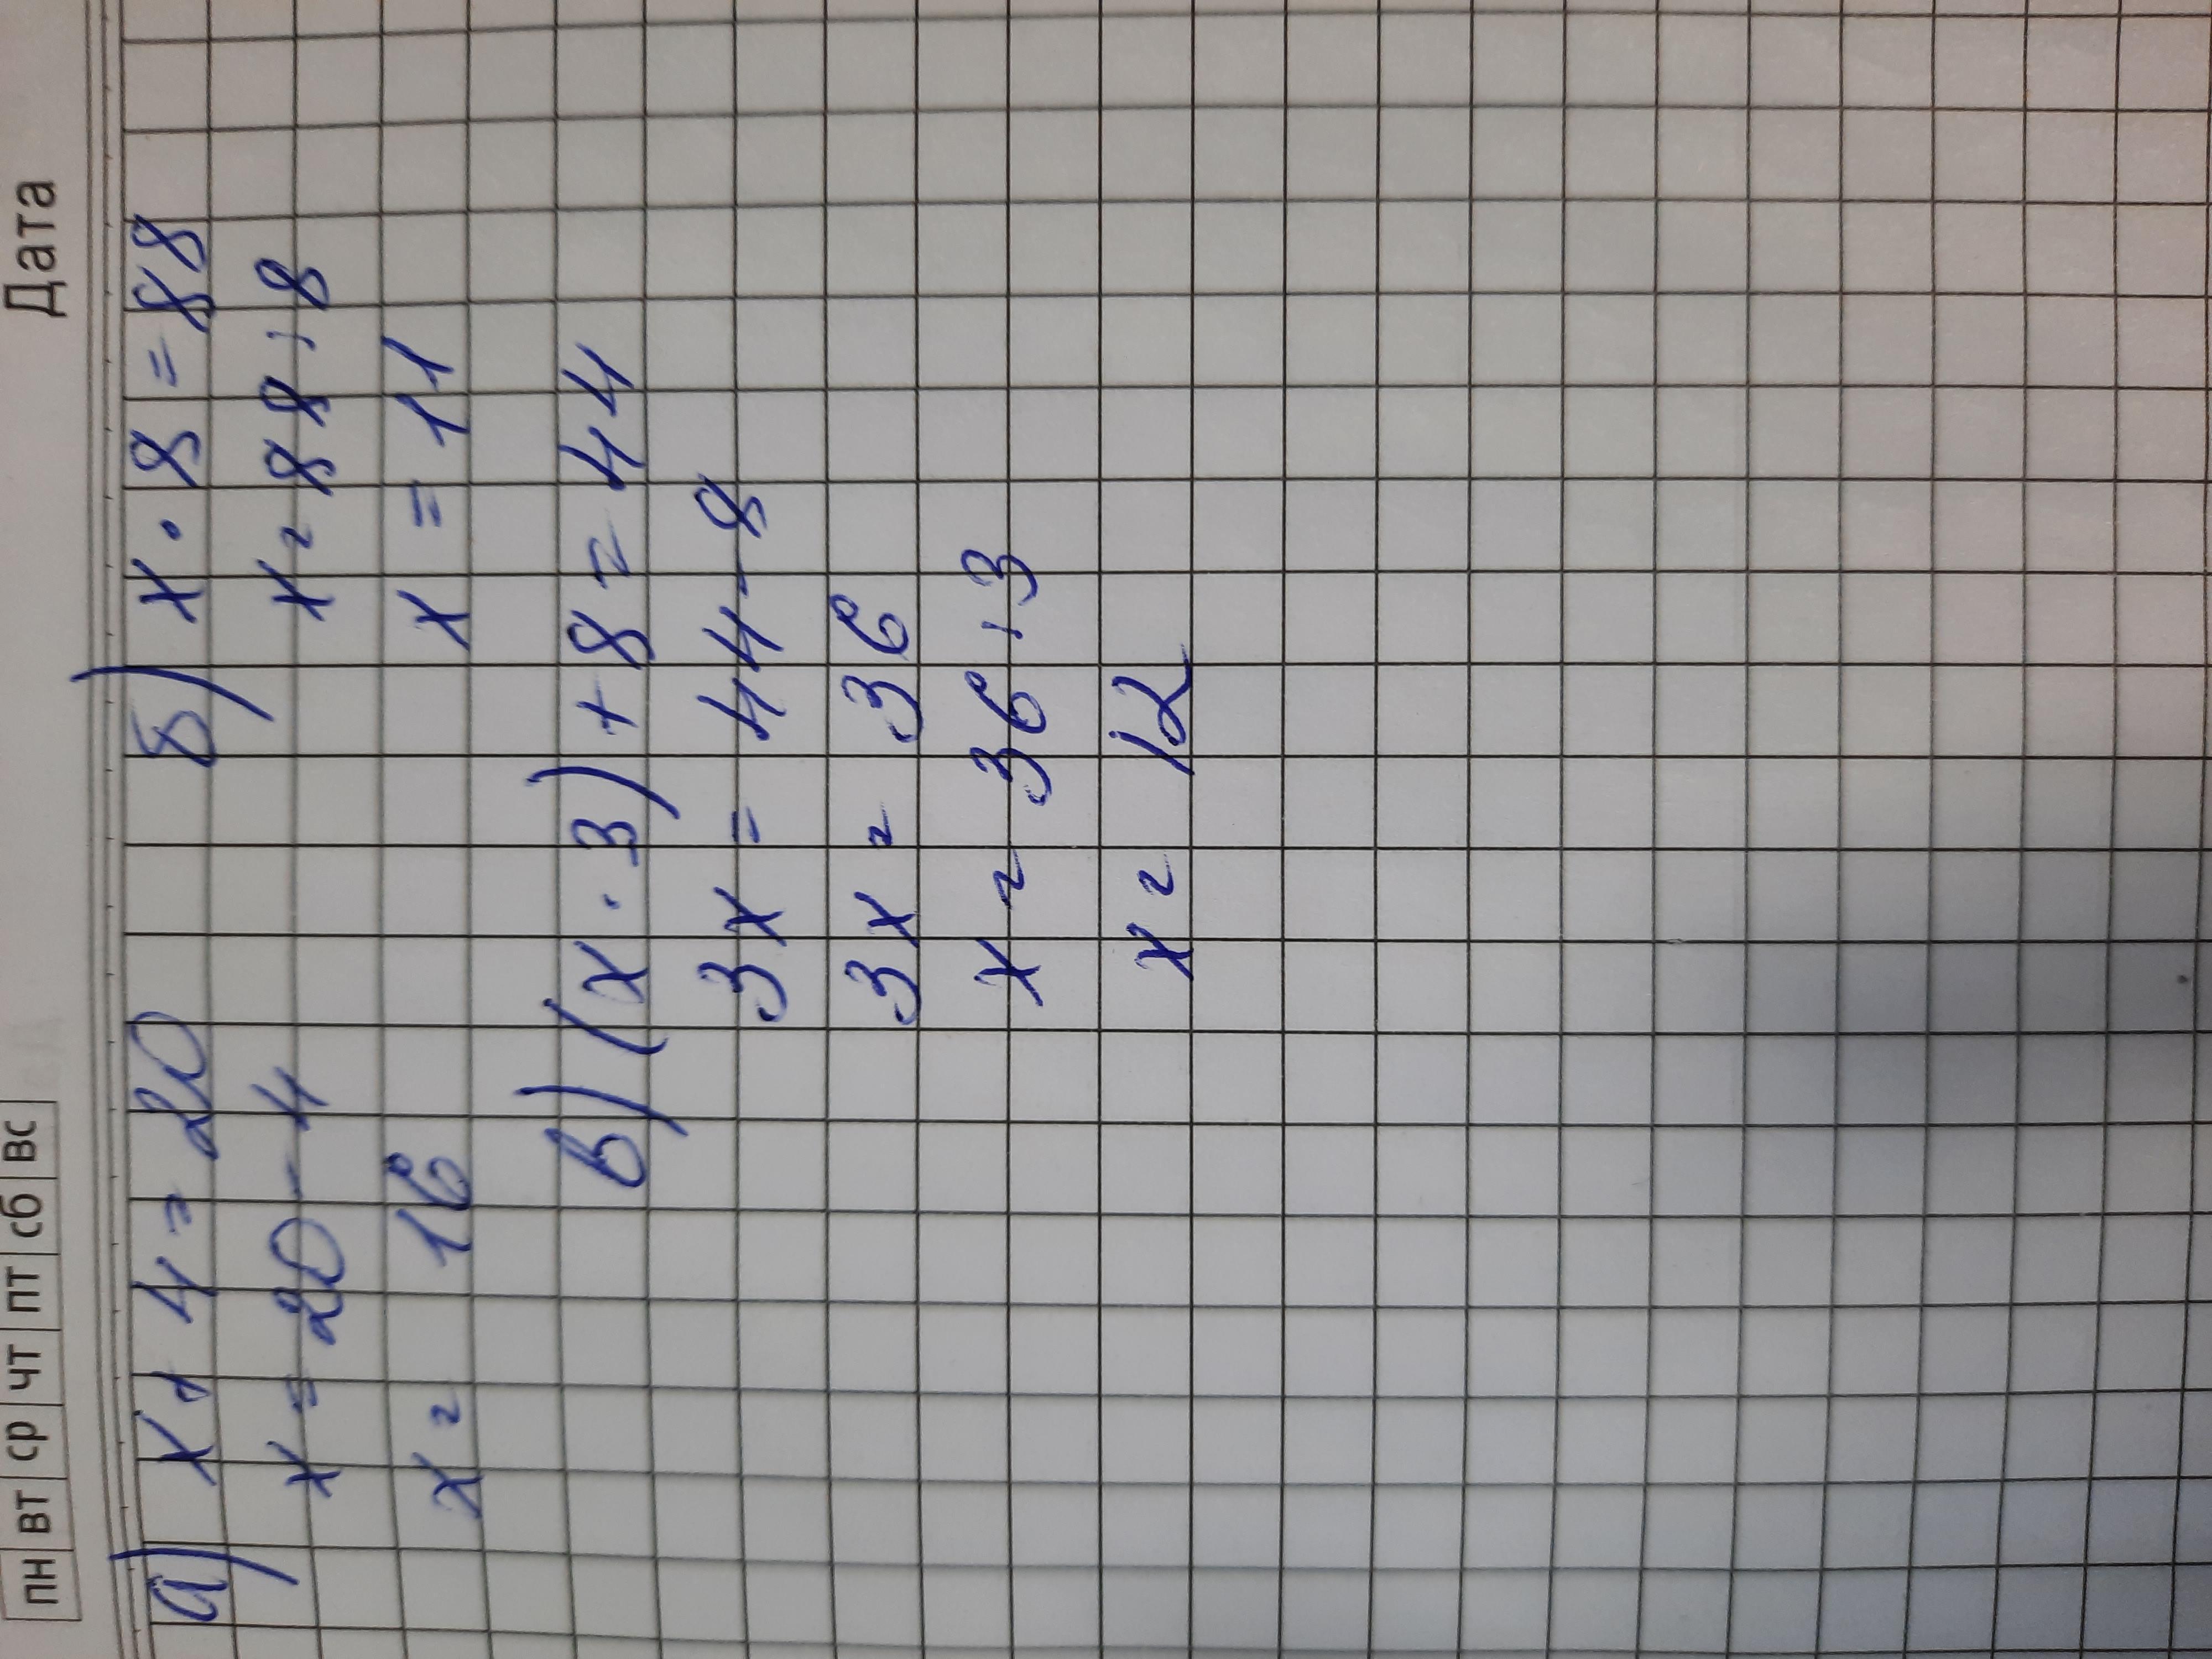 пн вт ср чт пт сб вс Дата
а) x + 4 = 20 б) x · 8 = 88
x = 20 - 4 x = 88 : 8
x = 16 x = 11
в) (x · 3) + 8 = 44
3x = 44 - 8
3x = 36
x = 36 : 3
x = 12